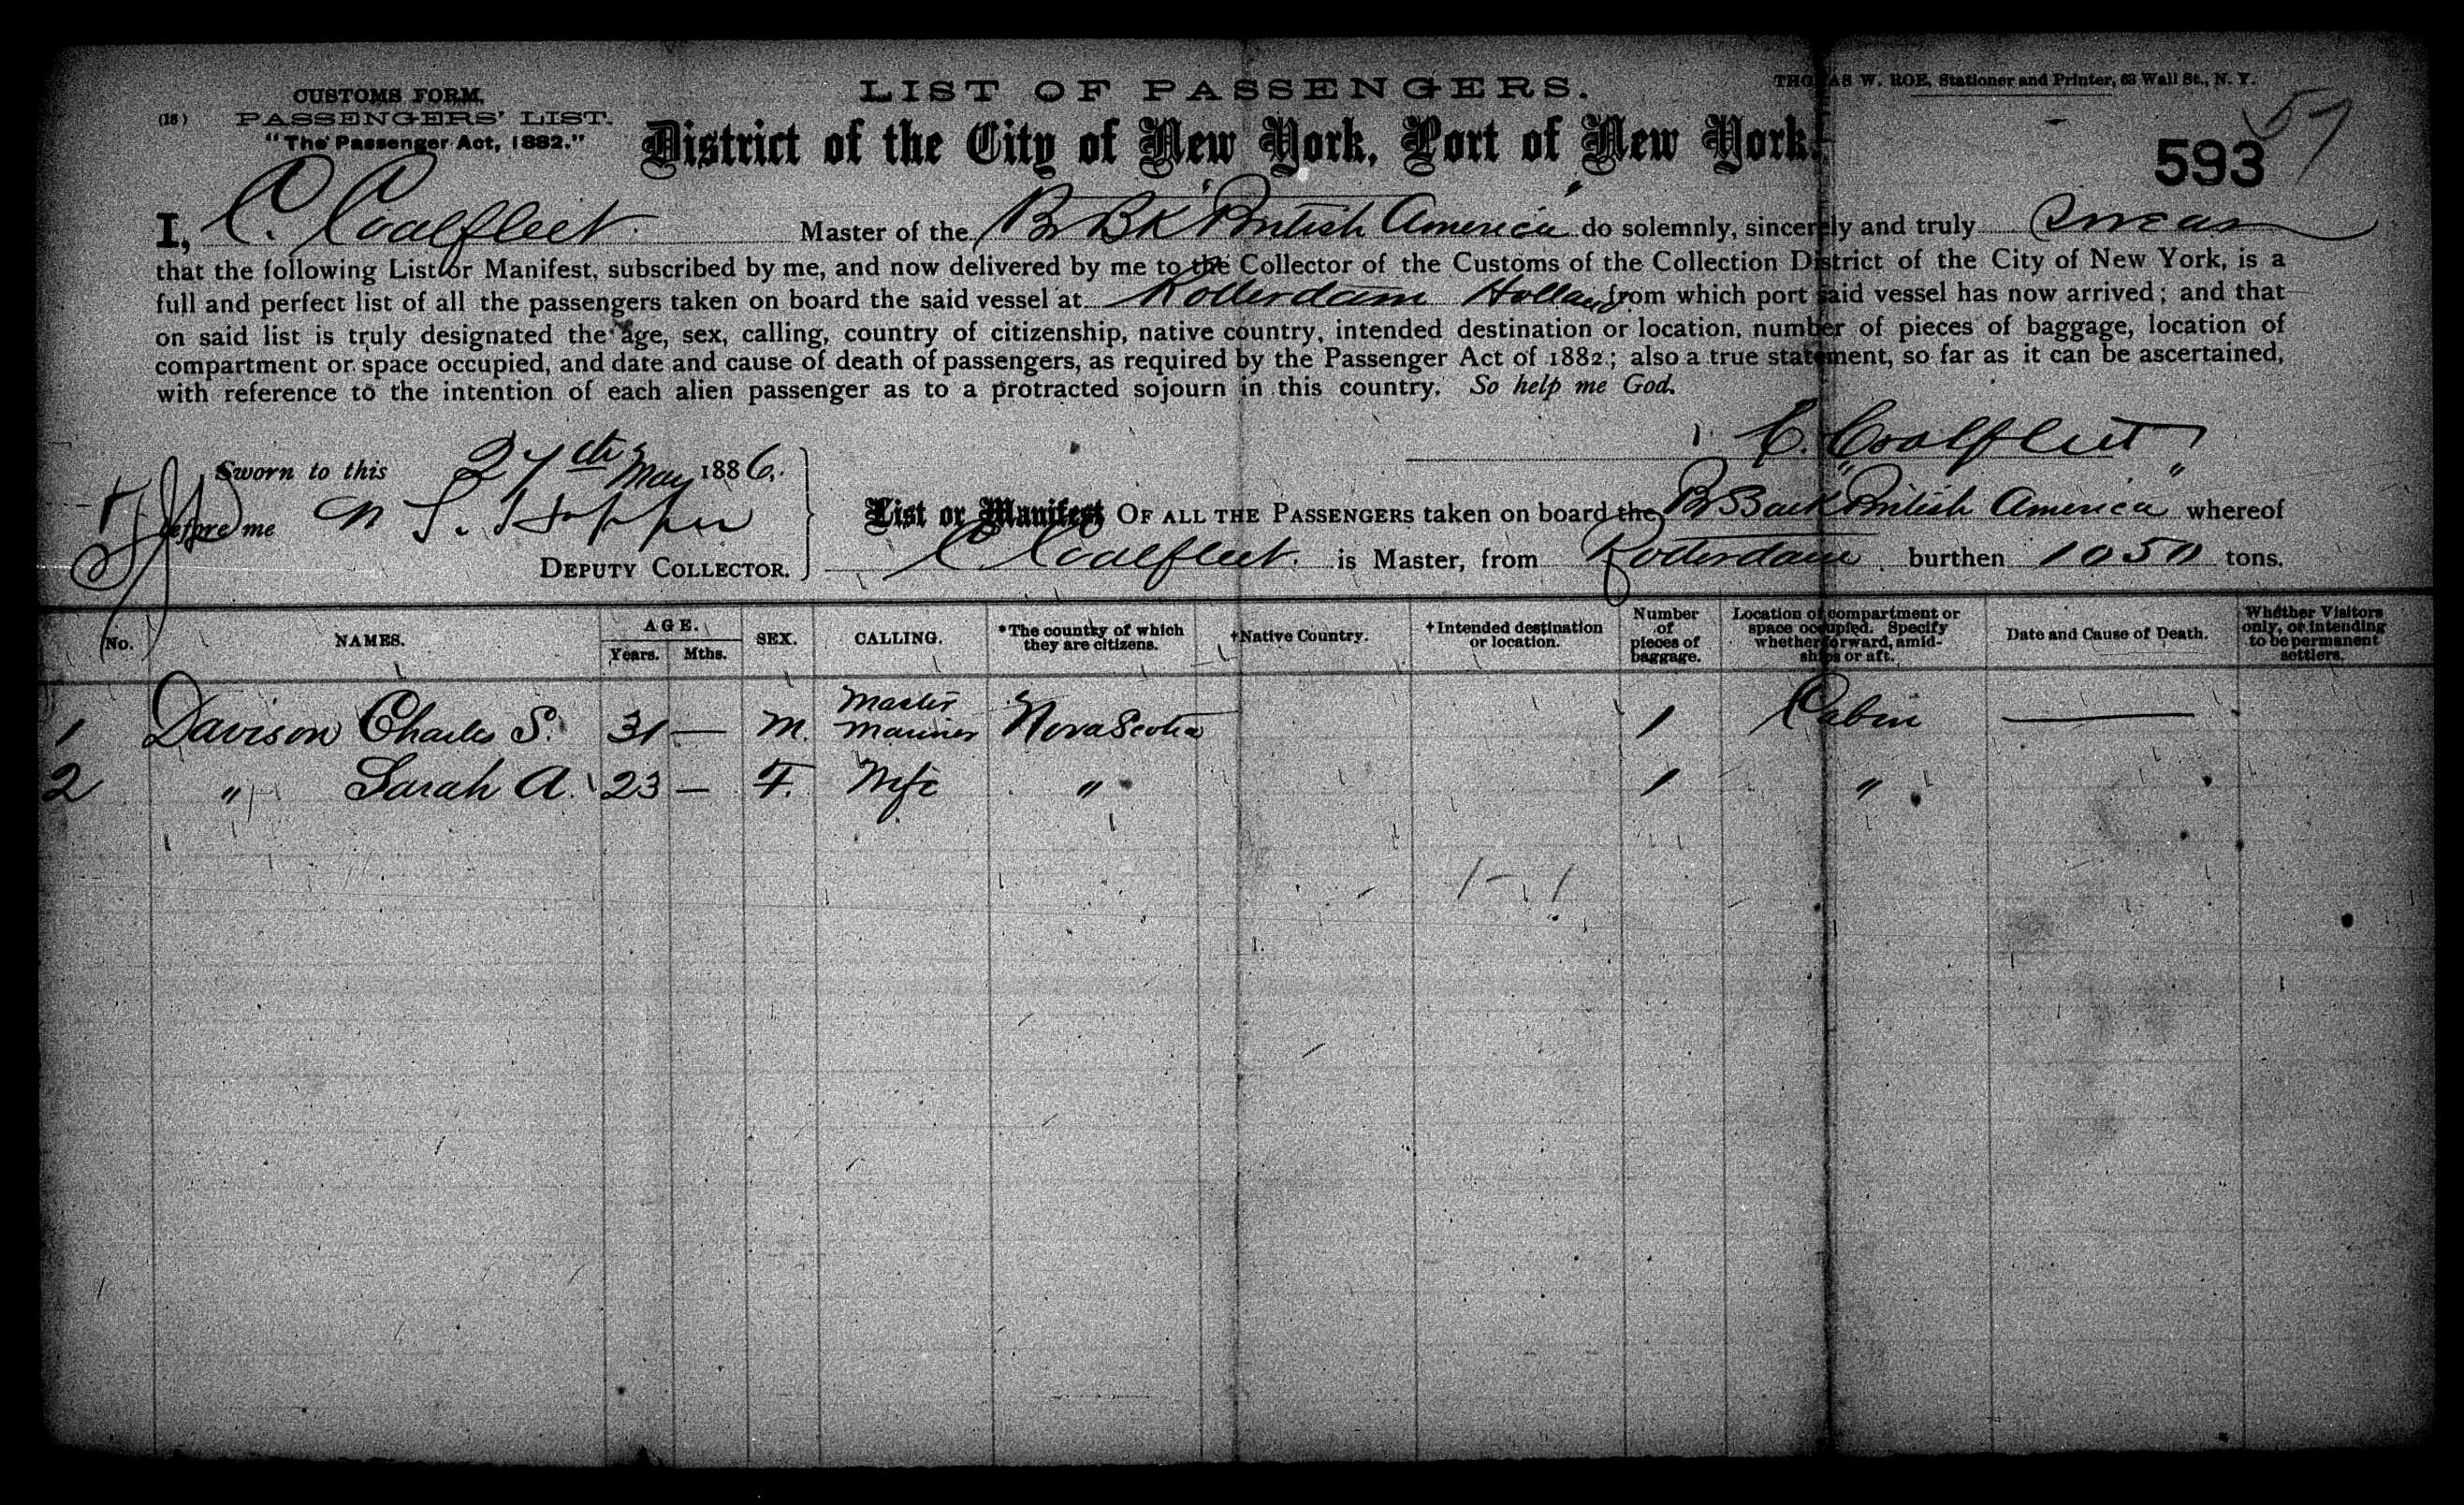 LIST OF PASSENGERS.
THOMAS W. ROE, Stationer and Printer, 63 Wall St., N. Y.
CUSTOMS FORM.
(18) PASSENGERS' LIST.
"The Passenger Act, 1882."
57
District of the City of New York, Port of New York.
593
I, C. Coalfleet Master of the Br Bk "British America" do solemnly, sincerely and truly swear
that the following List or Manifest, subscribed by me, and now delivered by me to the Collector of the Customs of the Collection District of the City of New York, is a
full and perfect list of all the passengers taken on board the said vessel at Rotterdam Holland from which port said vessel has now arrived; and that
on said list is truly designated the age, sex, calling, country of citizenship, native country, intended destination or location, number of pieces of baggage, location of
compartment or space occupied, and date and cause of death of passengers, as required by the Passenger Act of 1882; also a true statement, so far as it can be ascertained,
with reference to the intention of each alien passenger as to a protracted sojourn in this country. So help me God.
C. Coalfleet
Sworn to this 27th May 1886.
before me N S. Hopper
DEPUTY COLLECTOR.
List or Manifest OF ALL THE PASSENGERS taken on board the Br Bark "British America" whereof
C Coalfleet. is Master, from Rotterdam burthen 1050 tons.
No. NAMES. AGE. Years. Mths. SEX. CALLING. *The country of which they are citizens. †Native Country. †Intended destination or location. Number of pieces of baggage. Location of compartment or space occupied. Specify whether forward, amidships or aft. Date and Cause of Death. Whether Visitors only, or intending to be permanent settlers.
1 Davison Charles S. 31 — M. Master Mariner Nova Scotia 1 Cabin —
2 " Sarah A. 23 — F. Wife " 1 "